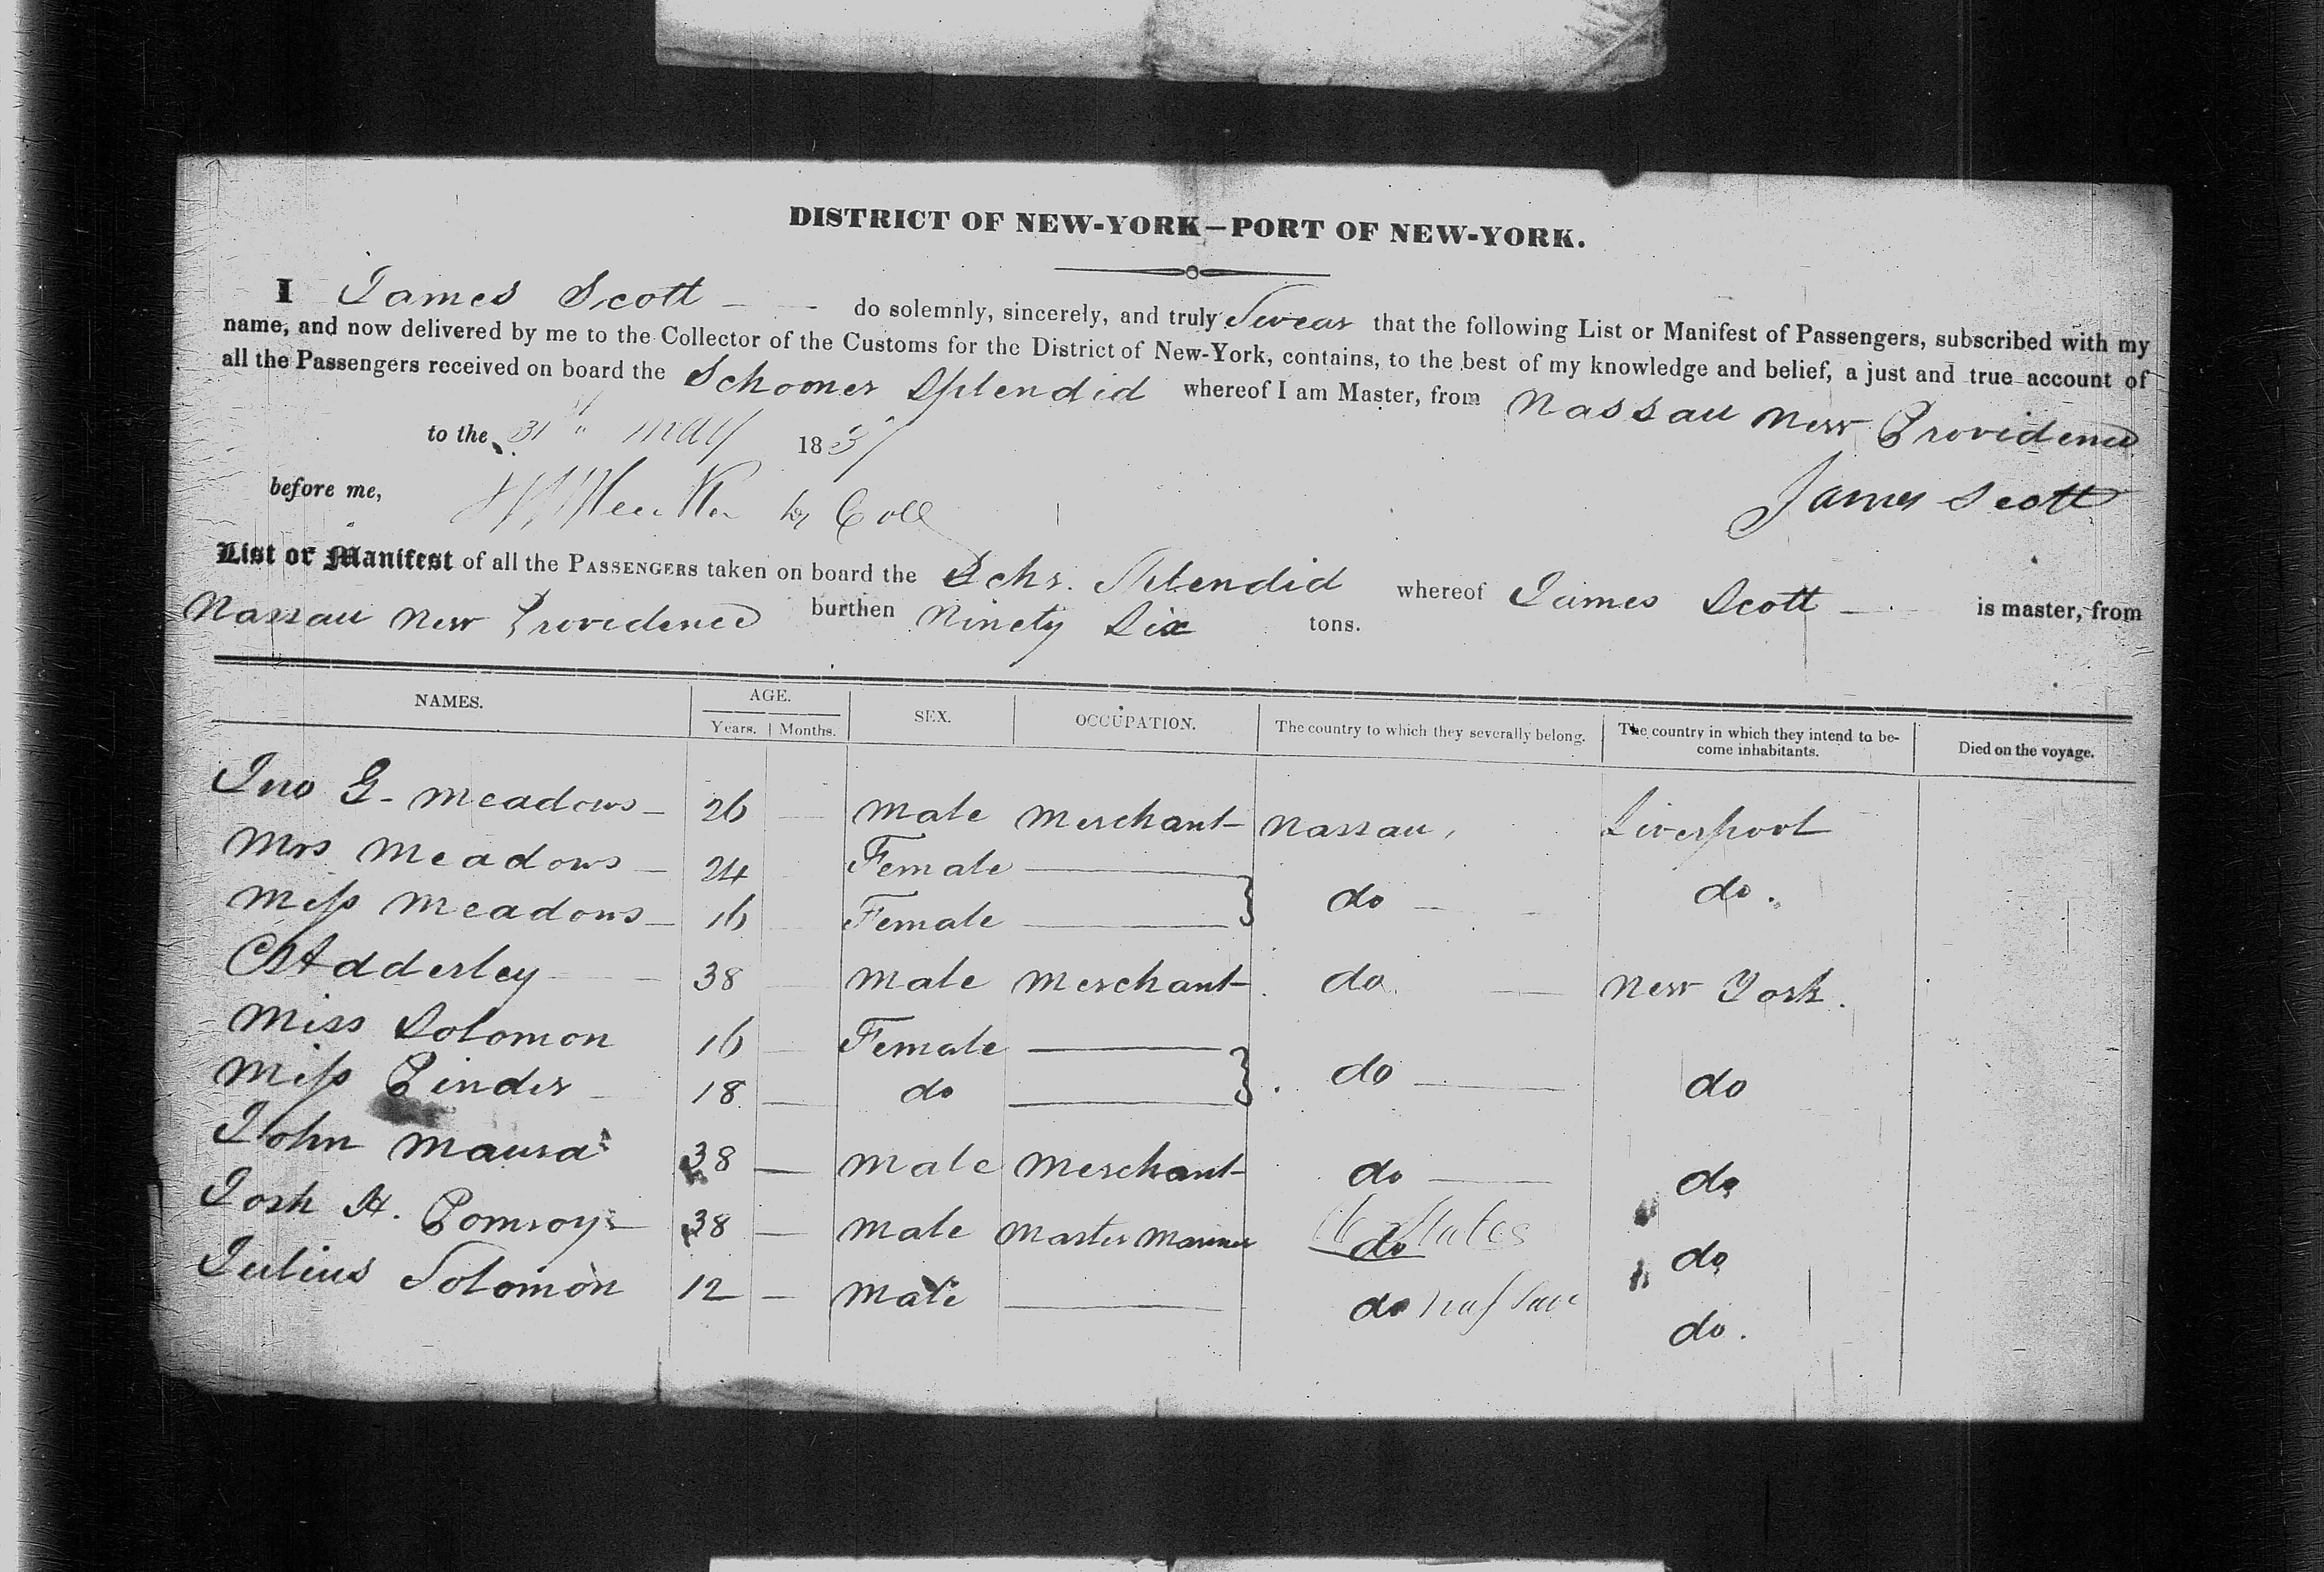 DISTRICT OF NEW-YORK—PORT OF NEW-YORK.
I James Scott do solemnly, sincerely, and truly Swear that the following List or Manifest of Passengers, subscribed with my
name, and now delivered by me to the Collector of the Customs for the District of New-York, contains, to the best of my knowledge and belief, a just and true account of
all the Passengers received on board the Schooner Splendid whereof I am Master, from Nassau New Providence
to the 31st May 183
James Scott
before me, Coll
List or Manifest of all the PASSENGERS taken on board the Schr. Splendid whereof James Scott is master, from
Nassau New Providence burthen Ninety Six tons.
NAMES. AGE. Years. Months. SEX. OCCUPATION. The country to which they severally belong. The country in which they intend to be-
come inhabitants. Died on the voyage.
Jno G. Meadows 26 Male Merchant Nassau, Liverpool
Mrs Meadows 24 Female
do do.
Miss Meadows 16 Female
Adderley 38 Male Merchant do New York.
Miss Solomon 16 Female
do do
Miss Pinder 18 do
John Maura 38 Male Merchant do do
Josh H. Pomroy 38 Male Master Mariner do States do
Julius Solomon 12 Male do Nassau do.